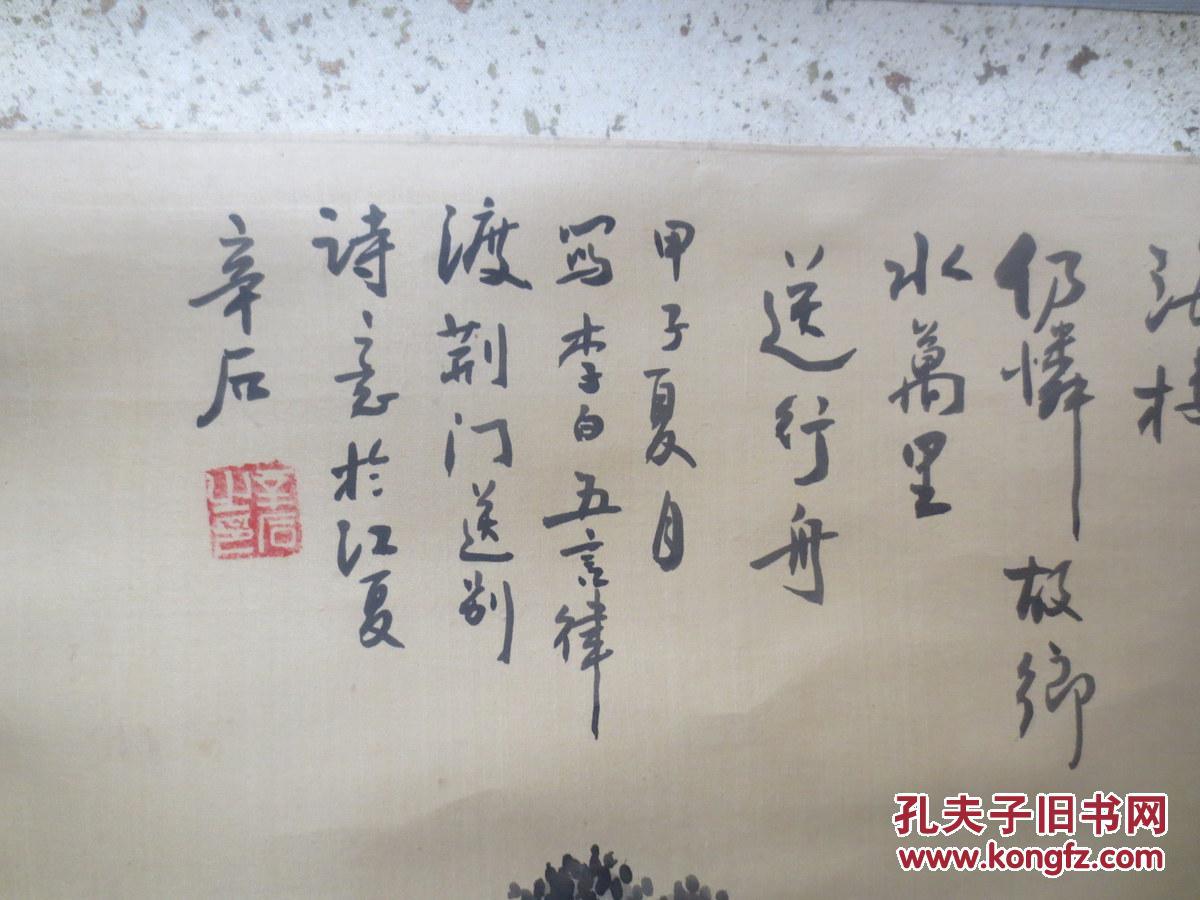 海楼
仍憐故鄉
水萬里
送行舟
甲子夏月
写李白五言律
渡荆门送别
诗意於江夏
辛石
辛石之印
孔夫子旧书网
www.kongfz.com